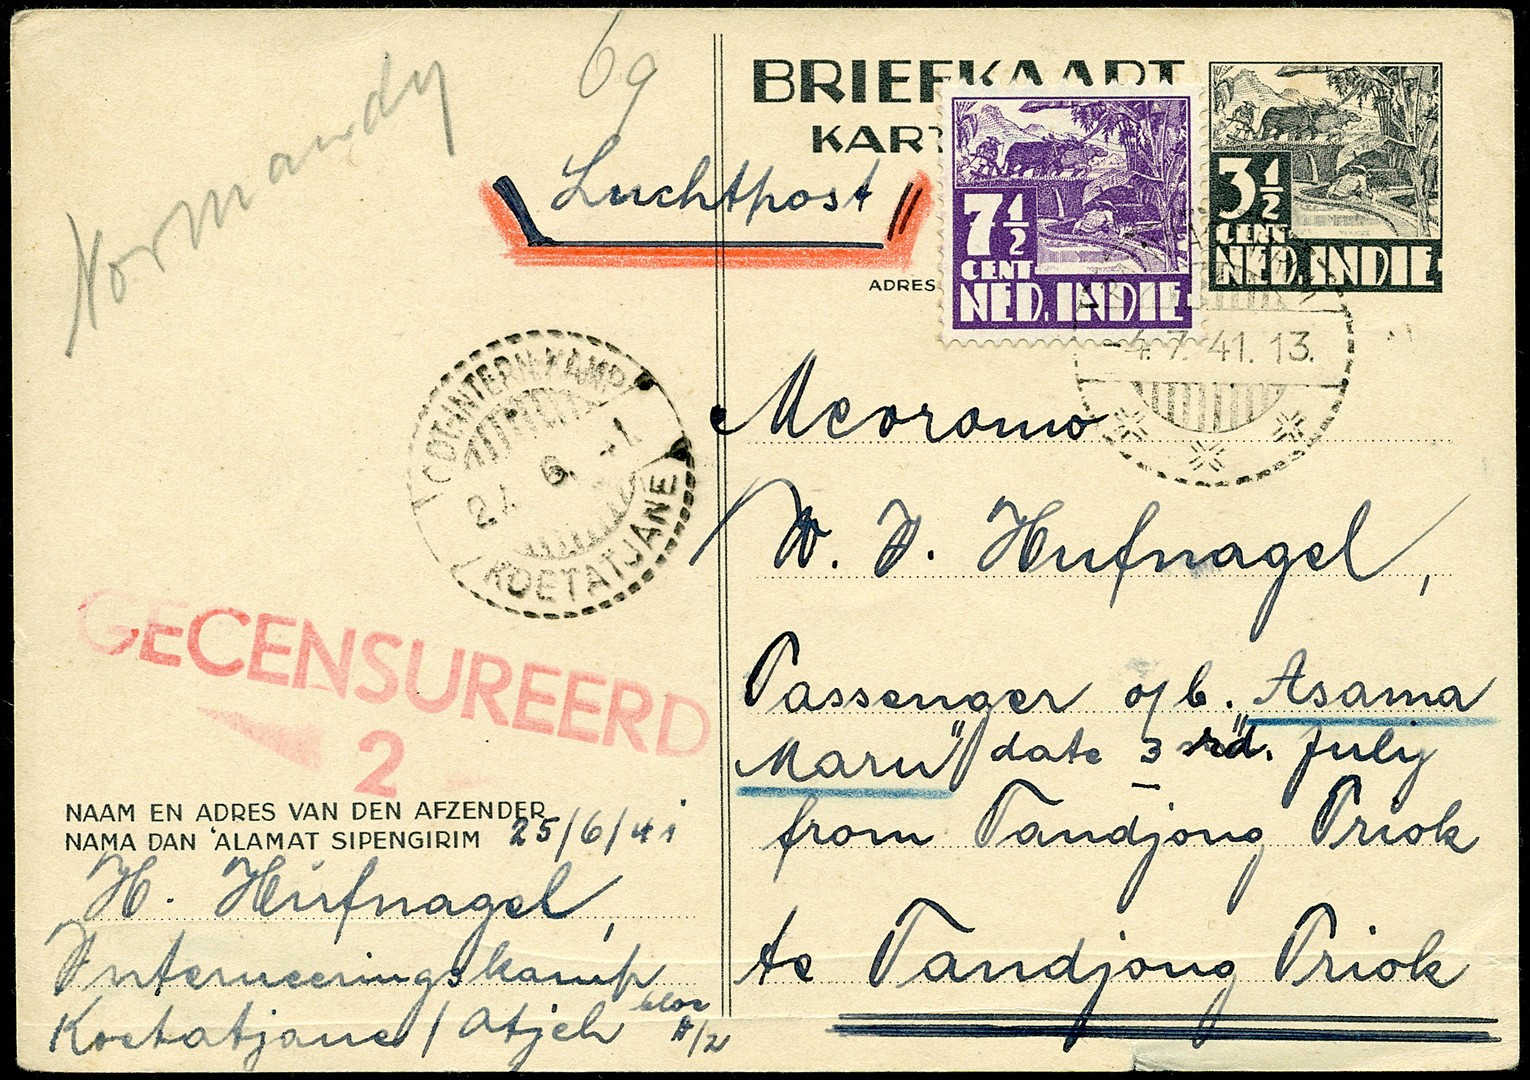 Normandy
69
BRIEFKAART
KART
Luchtpost
ADRES
7½
CENT
NED. INDIE
3½
CENT
NED. INDIE
-4.7.41.13.
INTERN.KAMP
6
KOETATJANE
GECENSUREERD
2
Mevrouw
W. J. Hufnagel,
Passenger o/b. Asama
Maru" date 3 rd. July
from Tandjong Priok
te Tandjong Priok
NAAM EN ADRES VAN DEN AFZENDER
NAMA DAN 'ALAMAT SIPENGIRIM 25/6/41
H. Hufnagel,
Interneeringskamp
Koetatjane / Atjeh bloc
A/2